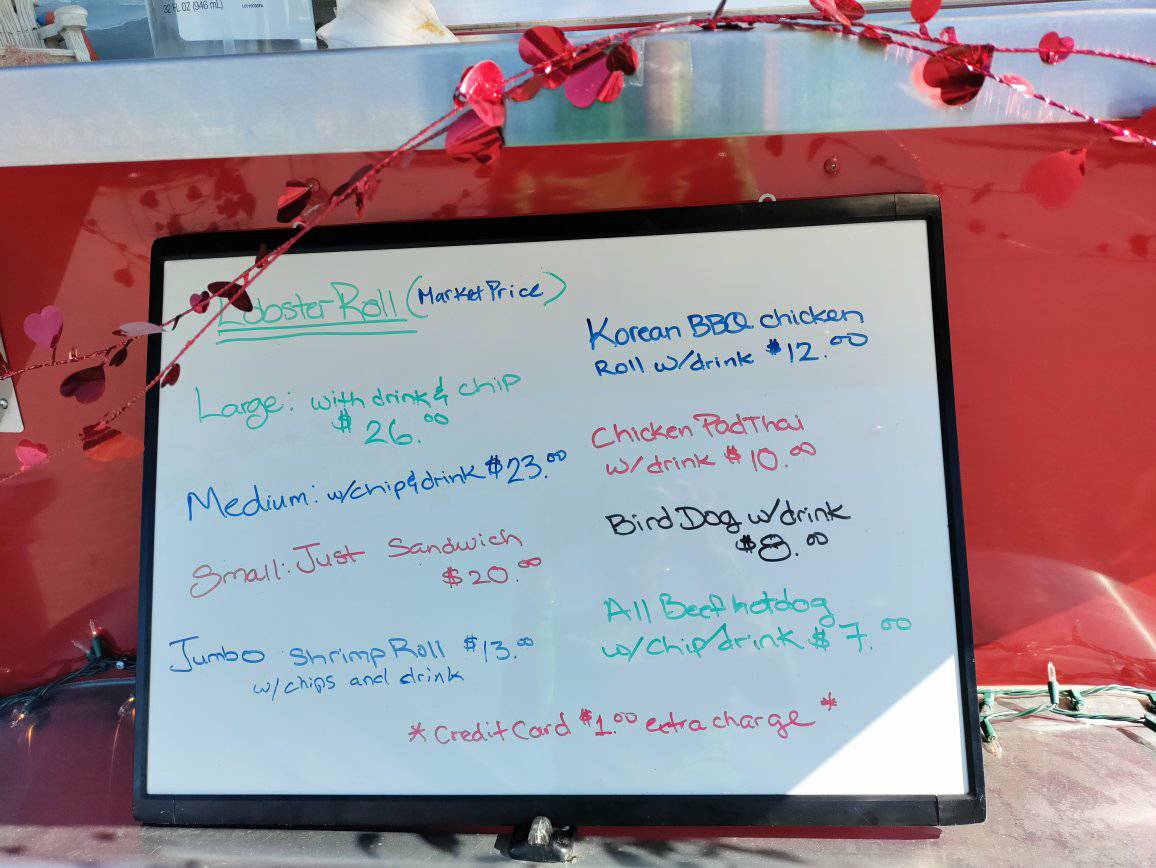 32 FL OZ (946 mL)
Lobster Roll (Market Price)
Large: with drink & chip
$26.00
Medium: w/chip & drink $23.00
Small: Just Sandwich
$20.00
Jumbo Shrimp Roll $13.00
w/chips and drink
Korean BBQ chicken
Roll w/drink $12.00
Chicken Pad Thai
w/drink $10.00
Bird Dog w/drink
$8.00
All Beef hotdog
w/chip/drink $7.00
*Credit Card $1.00 extra charge*